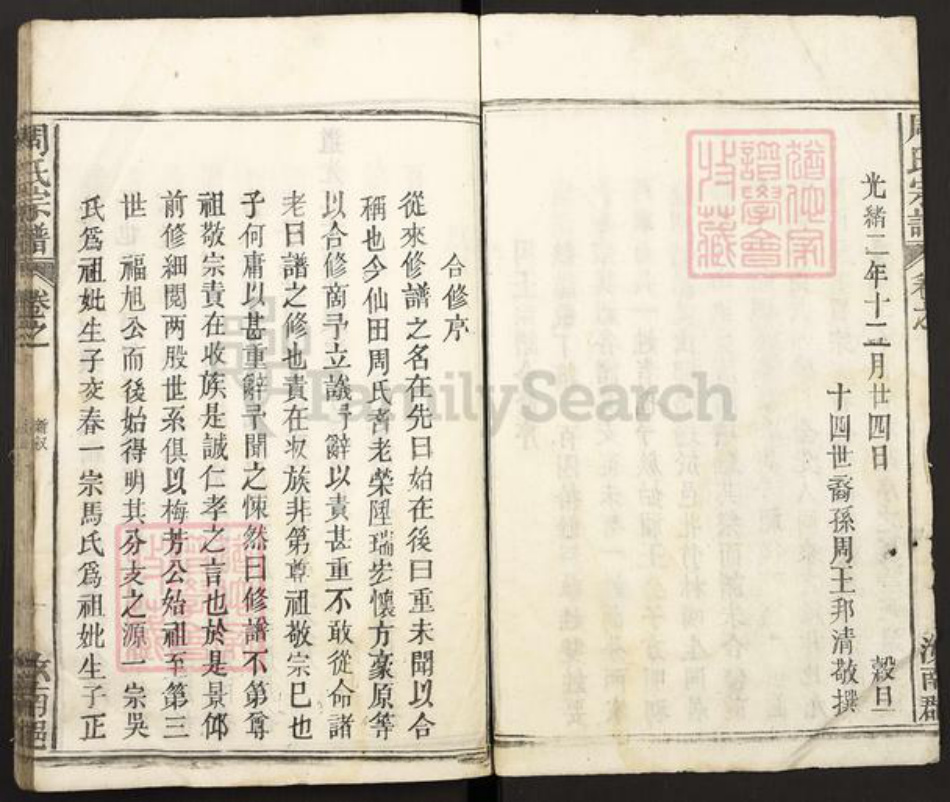 周氏宗譜
光緒二年十二月廿四日 穀旦
十四世裔孫周玉邦清敬撰
合修序
從來修譜之名在先曰始在後曰重未聞以合
稱也今仙田周氏耆老榮陞瑞宏懷方豪原等
以合修商予立議予辭以責甚重不敢從命諸
老曰譜之修也責在收族非第尊祖敬宗巳也
予何庸以甚重辭予聞之悚然曰修譜不第尊
祖敬宗責在收族是誠仁孝之言也於是景仰
前修細閱两股世系俱以梅芳公始祖至第三
世 福旭公而後始得明其分支之源一宗吳
氏爲祖妣生子交春一宗馬氏爲祖妣生子正
周氏宗譜
卷之一
猶他家譜學會收藏
FamilySearch